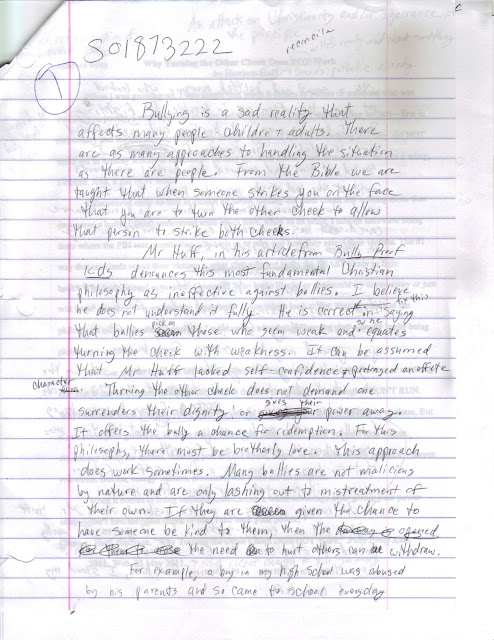 S01873222
reconcile
1
Bullying is a sad reality that
affects many people children + adults. There
are as many approaches to handling the situation
as there are people. From the Bible we are
taught that when someone strikes you on the face
that you are to turn the other cheek to allow
that person to strike both cheeks.
Mr Huff, in his article from Bully Proof
Kids denounces this most fundamental Christian
philosophy as ineffective against bullies. I believe
he does not understand it fully. He is correct in saying
that bullies pick on those who seem weak and he equates
turning the cheek with weakness. It can be assumed
that Mr Huff lacked self-confidence + portrayed an effete
character.
Turning the other cheek does not demand one
surrenders their dignity or gives their power away.
It offers the bully a chance for redemption. For this
philosophy, there must be brotherly love. This approach
does work sometimes. Many bullies are not malicious
by nature and are only lashing out to mistreatment of
their own. If they are given the chance to
have someone be kind to them, then the
the need to hurt others can withdraw.
For example, a boy in my high school was abused
by his parents and so came to school everyday